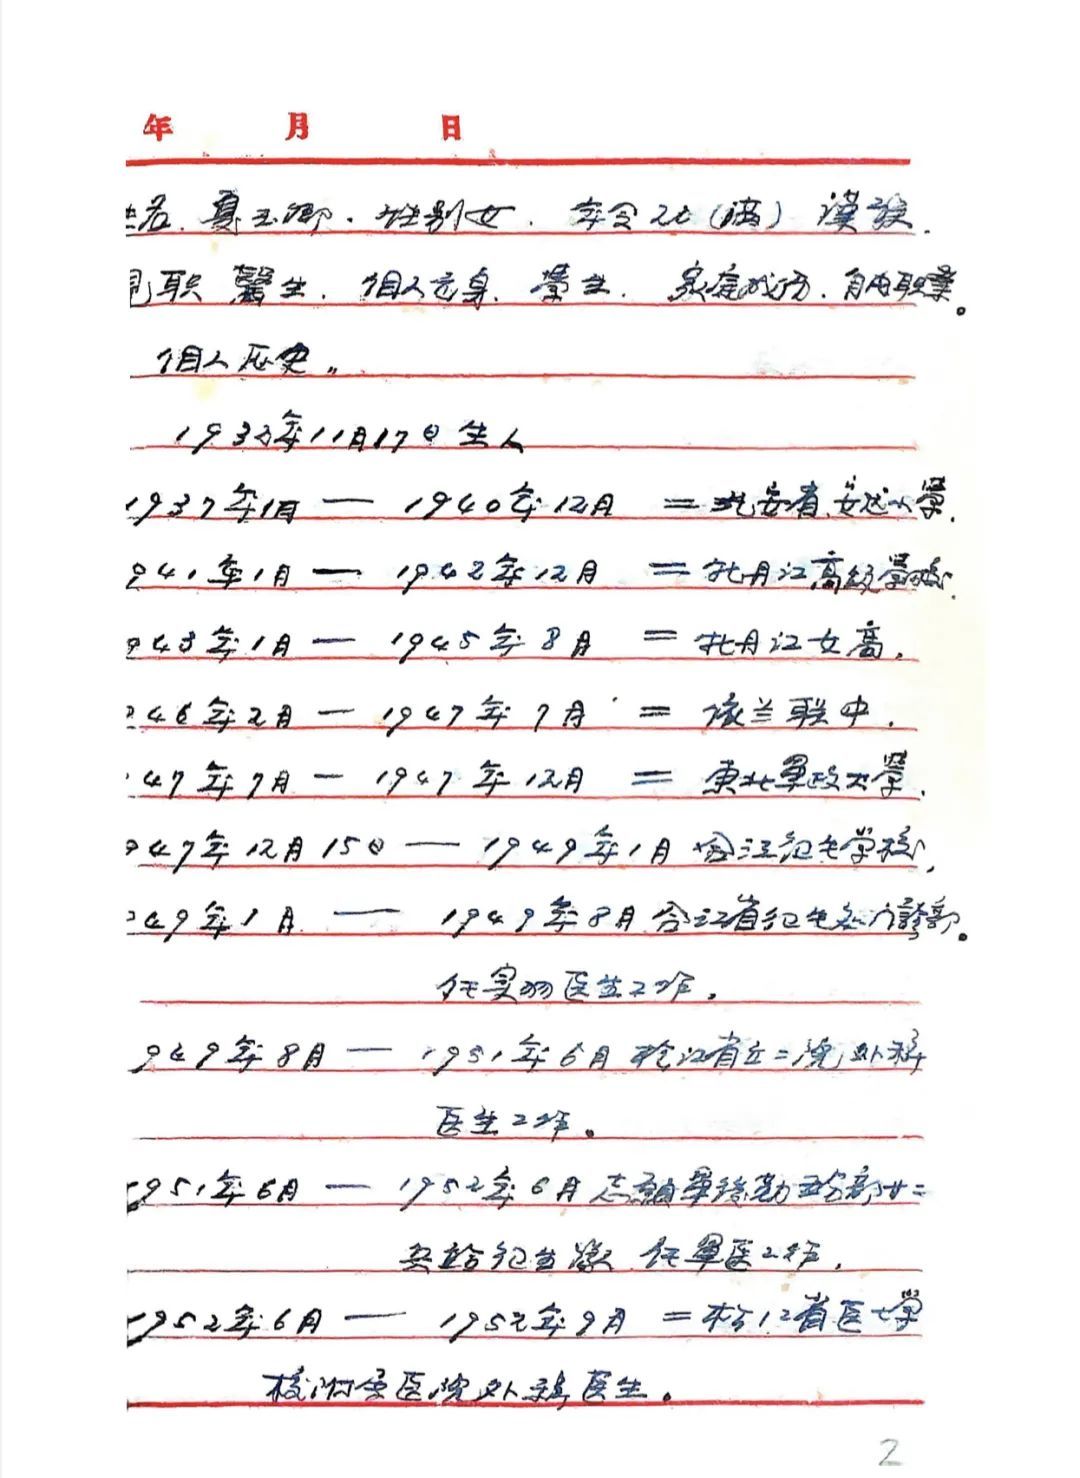 年 月 日
姓名. 夏玉卿. 性别女. 年令 (满) 漢族.
现职 醫生. 個人出身. 學生. 家庭成份. 自由职業。
個人历史。
193 年11月17日生人
1937年1月 — 1940年12月 = 北安省 安达小學.
941年1月 — 1942年12月 = 牡丹江高级學校.
943年1月 — 1945年8月 = 牡丹江女高.
946年2月 — 1947年7月 = 依兰联中.
47年7月 — 1947年12月 = 東北軍政大學.
947年12月15日 — 1949年1月 合江卫生学校,
949年1月 — 1949年8月 合江省卫生处门診部。
任实习医生工作.
949年8月 — 1951年6月 松江省立二院外科
医生工作。
1951年6月 — 1952年6月 志願軍後勤 部廿二
兵站卫生隊 任軍医工作.
1952年6月 — 1952年9月 = 松江省医士学
校附属医院外科医生。
2